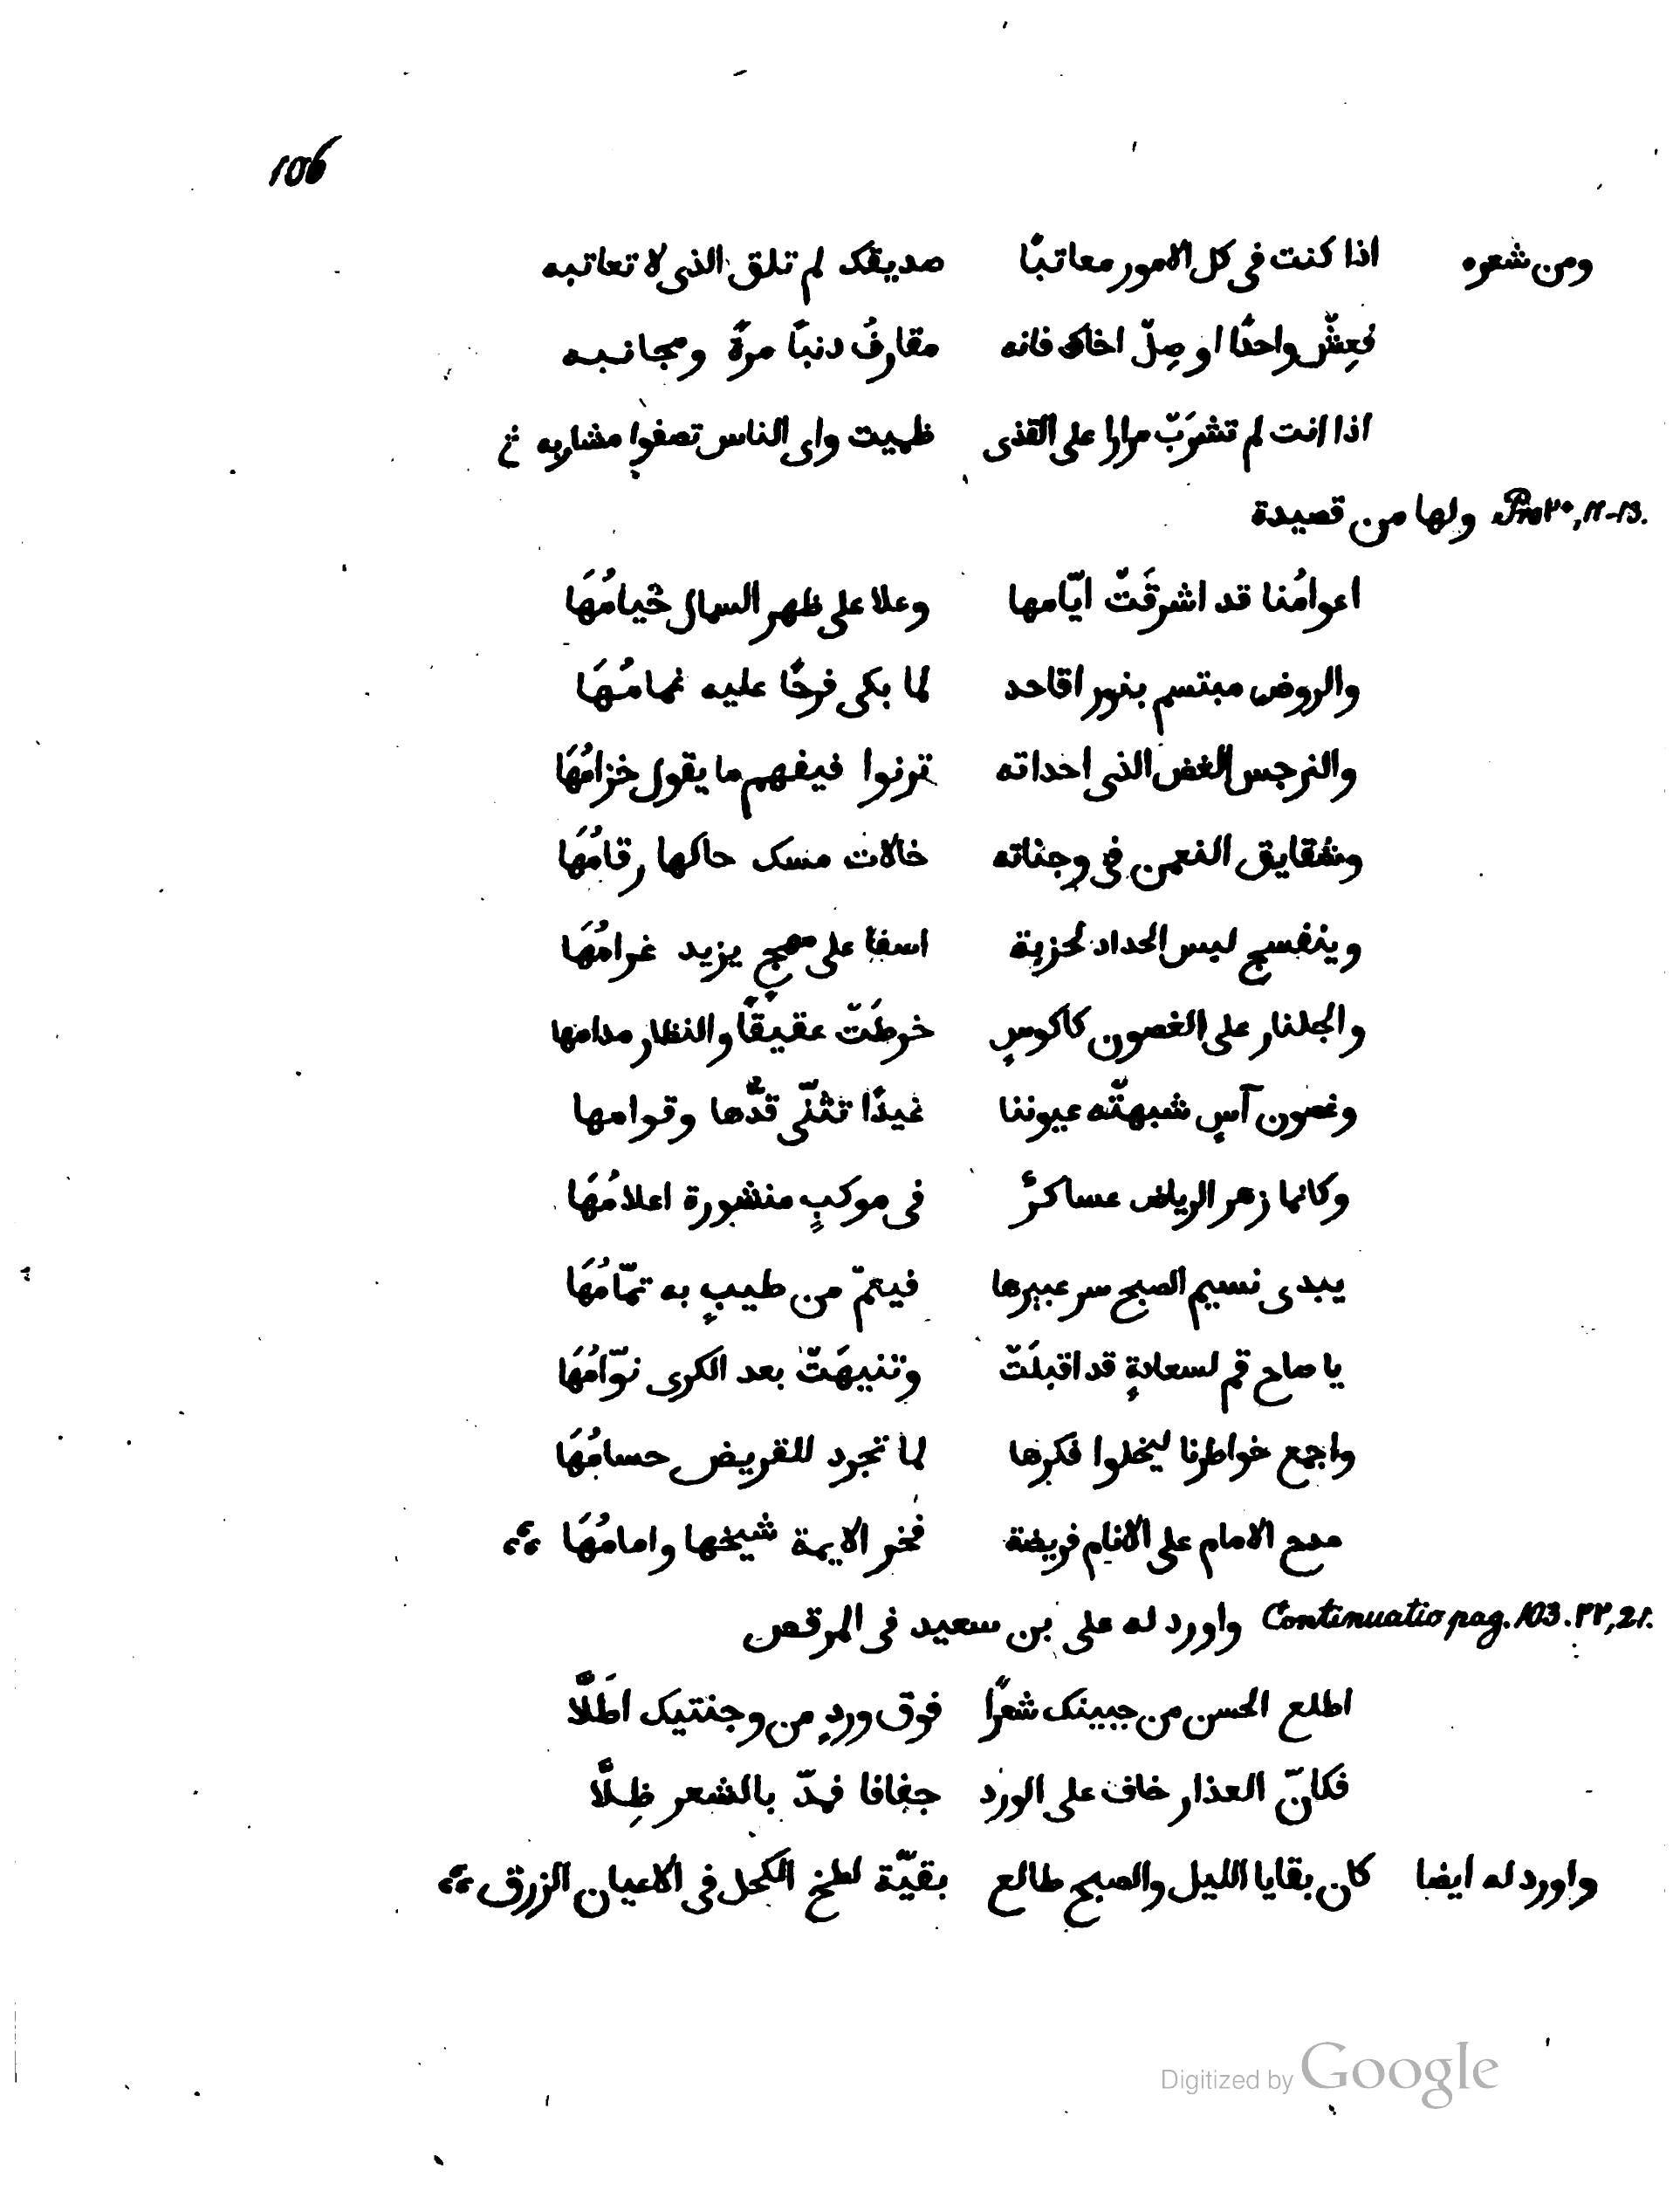 106
ومن شعره اذا كنت فى كل الامور معاتبًا صديقك لم تلق الذى لا تعاتبه
فعِشْ واحدًا او صِلْ اخاك فانه مقارفُ دنبًا مرةً ومجانبه
اذا انت لم تشرَبْ مرارا على القذى ظميت واى الناس تصفوا مشاربه
11-13. ولها من قصيدة
اعوامُنا قد اشرقَتْ ايّامها وعلا على ظهر السماك خيامُهَا
والروض مبتسم بنور اقاحد لما بكى فرحًا عليه غمامُهَا
والنرجس الغض الذى احداته ترنوا فيفهم ما يقول خزامُهَا
وشقايق النعمن فى وجناته خالات مسك حاكها رقامُهَا
وبنفسج لبس الحداد لحزبة اسفا على مهجٍ يزيد غرامُهَا
والجلنار على الغصون كاكوسٍ خرطَتْ عقيقًا والنظار مدامها
وغصون آسٍ شبهتْه عيوننا غيدًا تثنّى قدُّها وقوامها
وكانما زهر الرياض عساكرٌ فى موكبٍ منشورة اعلامُهَا
يبدى نسيم الصبح سر عبيرها فيتمّ من طيبٍ به تمّامُهَا
يا صاح قم لسعادةٍ قد اقبلَتْ وتنيهَتْ بعد الكرى نوّامُهَا
واجمع خواطرنا ليخلوا فكرها لما تجرد للقريض حسامُهَا
مدح الامام على الانام فريضة فخر الايمة شيخها وامامُهَا
Continuatio pag. 103. ٢٢, 21. واورد له على بن سعيد فى المرقص
اطلع الحسن من جبينك شعرًا فوق وردٍ من وجنتيك اطَلَّا
فكانّ العذار خاف على الورد جفافا فمدّ بالشعر ظِلًّا
واورد له ايضا كان بقايا الليل والصبح طالع بقيّة لطخ الكحل فى الاعيان الزرق
Digitized by Google